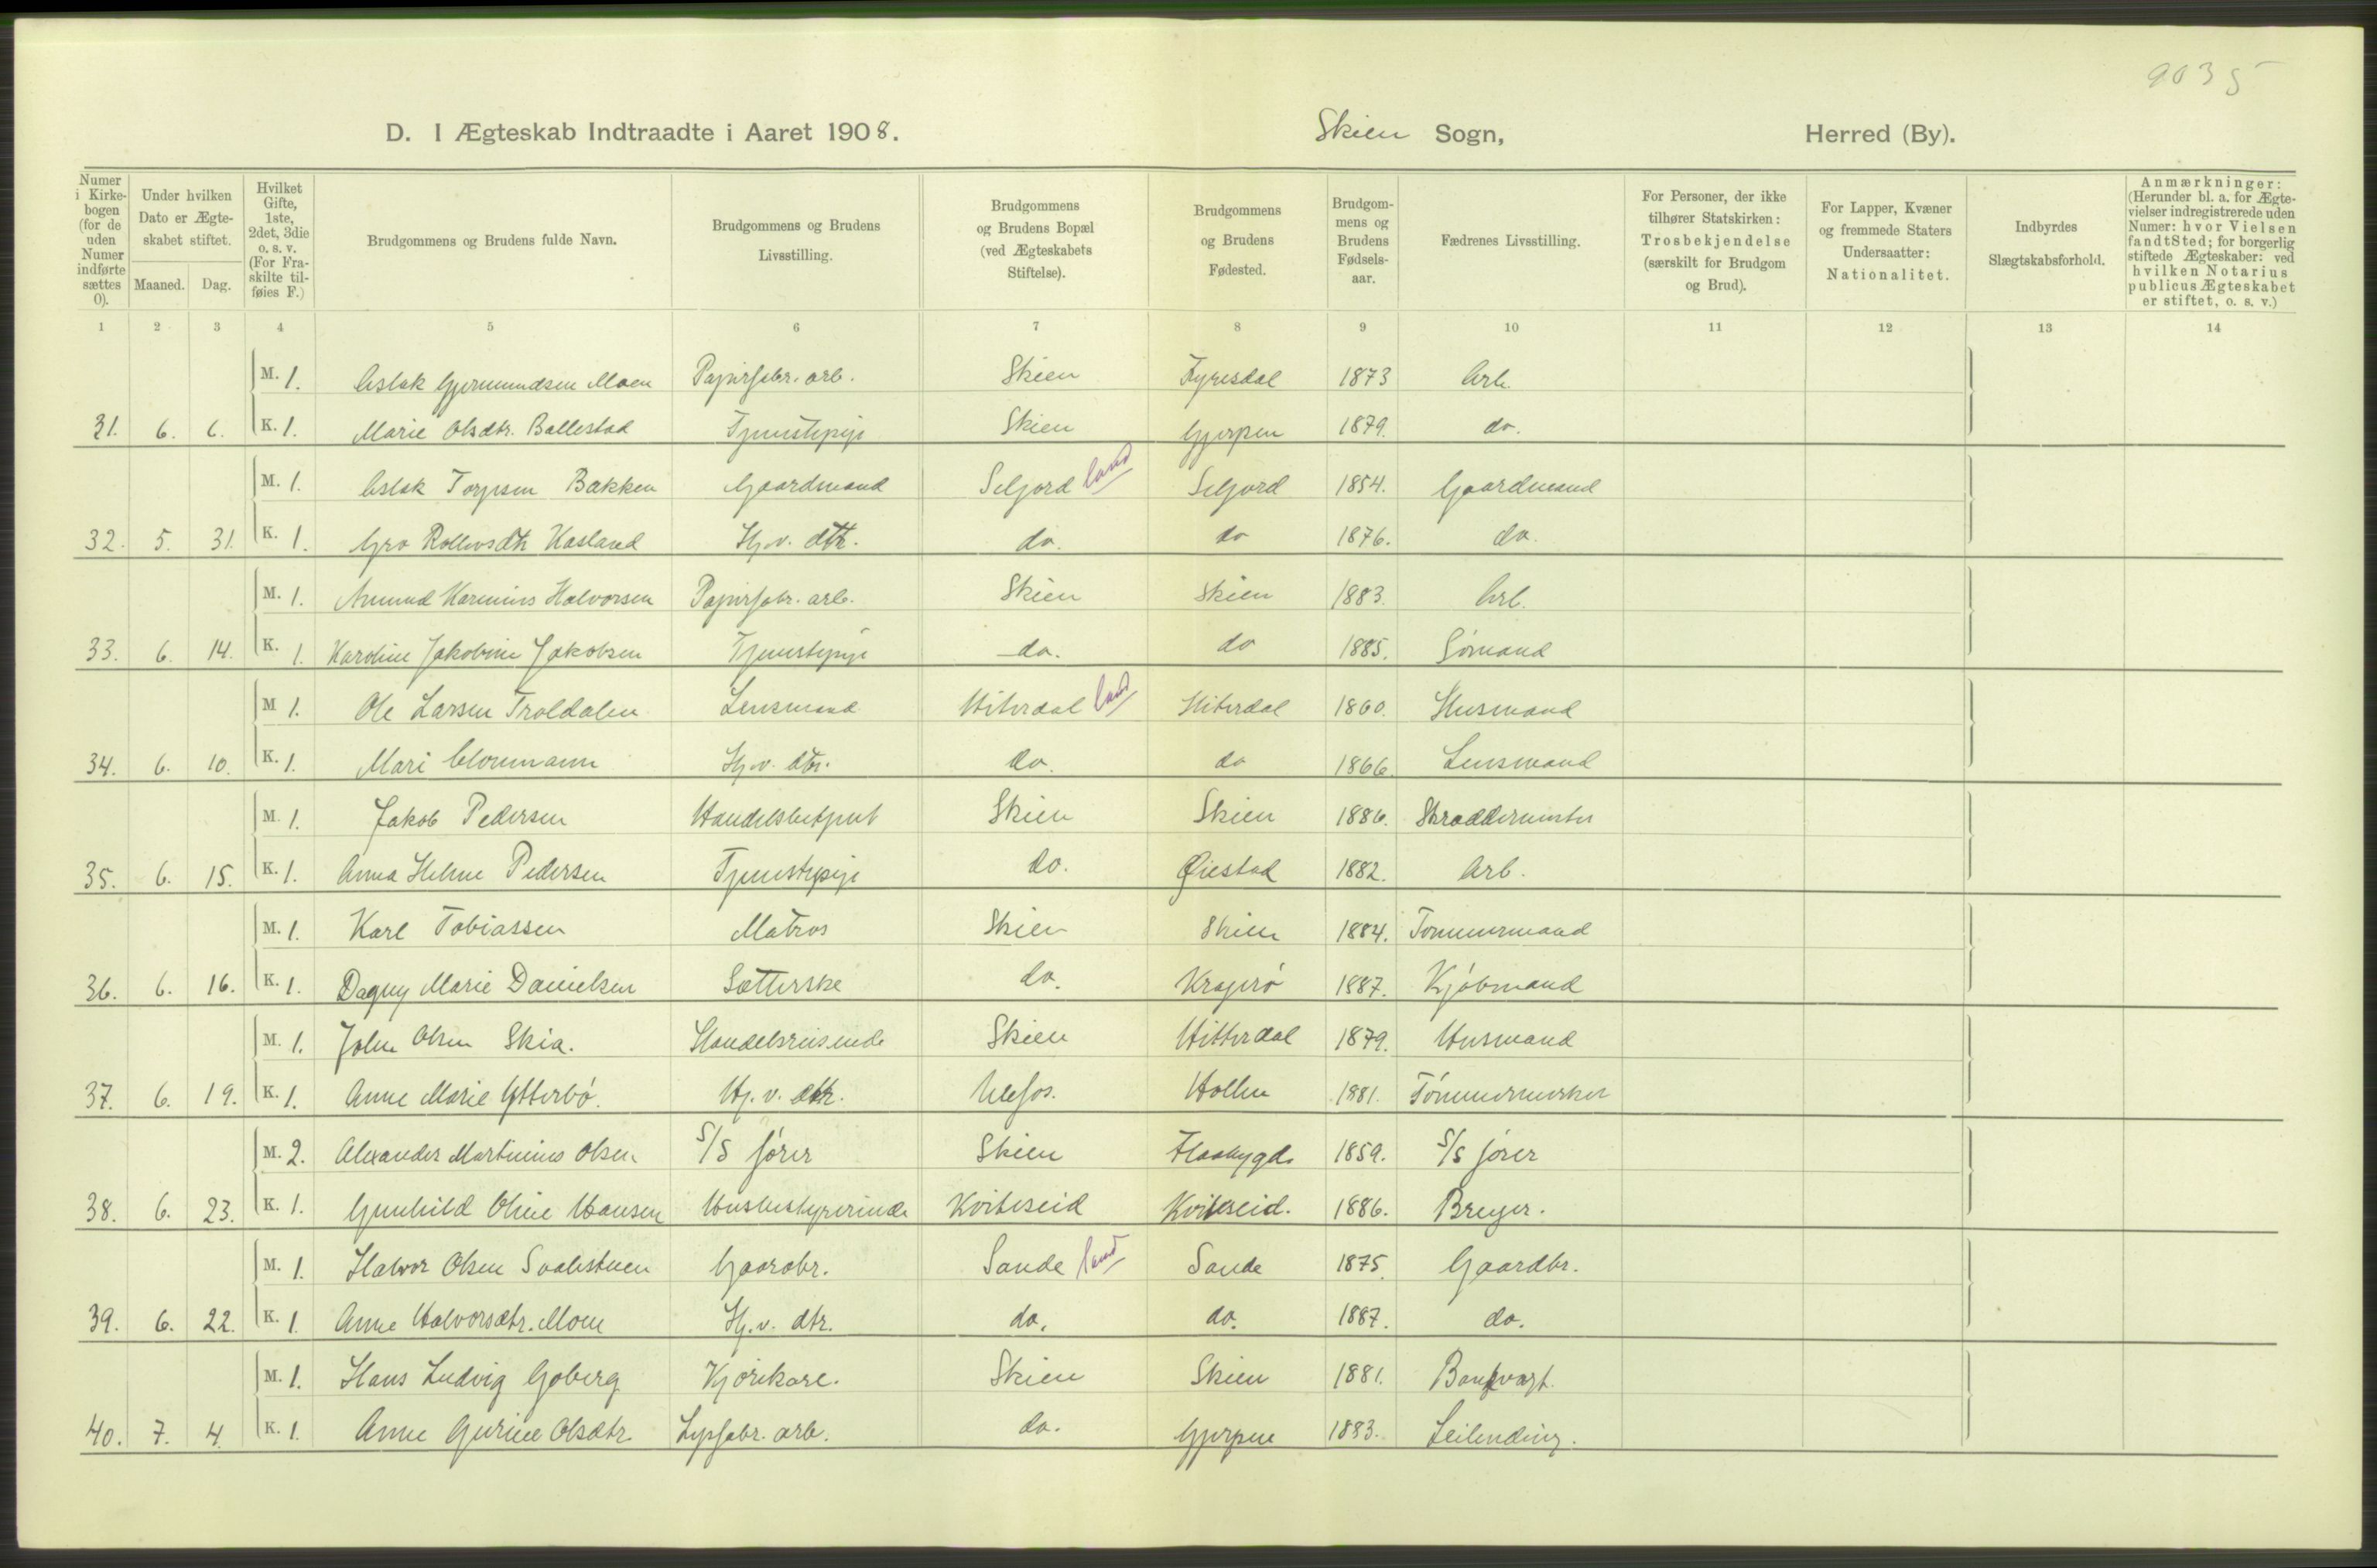 9035
D. I Ægteskab Indtraadte i Aaret 1908. Skien Sogn, Herred (By).
Numer i Kirkebogen (for de uden Numer indførte sættes 0). | Under hvilken Dato er Ægteskabet stiftet. Maaned. Dag. | Hvilket Gifte, 1ste, 2det, 3die o. s. v. (For Fraskilte tilføies F.) | Brudgommens og Brudens fulde Navn. | Brudgommens og Brudens Livsstilling. | Brudgommens og Brudens Bopæl (ved Ægteskabets Stiftelse). | Brudgommens og Brudens Fødested. | Brudgommens og Brudens Fødselsaar. | Fædrenes Livsstilling. | For Personer, der ikke tilhører Statskirken: Trosbekjendelse (særskilt for Brudgom og Brud). | For Lapper, Kvæner og fremmede Staters Undersaatter: Nationalitet. | Indbyrdes Slægtskabsforhold. | Anmærkninger: (Herunder bl. a. for Ægtevielser indregistrerede uden Numer: hvor Vielsen fandt Sted; for borgerlig stiftede Ægteskaber: ved hvilken Notarius publicus Ægteskabet er stiftet, o. s. v.)
1 2 3 4 5 6 7 8 9 10 11 12 13 14
M. 1. Aslak Gjermundsen Moen Papirfabr. arb. Skien Fyresdal 1873 Arb.
31. 6. 6. K. 1. Marie Olsdtr. Ballestad Tjenestepige Skien Gjerpen 1879. do.
M. 1. Aslak Torjusen Bakken Gaardmand Seljord land Seljord 1854. Gaardmand
32. 5. 31. K. 1. Gro Hj. v. dtr. do. do 1876. do.
M. 1. Amund Halvorsen Papirfabr. arb. Skien Skien 1883. Arb.
33. 6. 14. K. 1. Karoline Jakobine Jakobsen Tjenestepige do. do 1885. Sømand
M 1. Ole Larsen Troldalen Lensmand Hiterdal land Hiterdal 1860. Husmand
34. 6. 10. K. 1. Mari Hj. v. dtr. do. do 1866. Lensmand
M. 1. Jakob Pedersen Handelsbetjent Skien Skien 1886. Skræddermester
35. 6. 15. K. 1. Anna Helene Pedersen Tjenestepige do. Øiestad 1882. Arb.
M. 1. Karl Tobiassen Matros Skien Skien 1884. Tømmermand
36. 6. 16. K. 1. Dagny Marie Danielsen Sætterske do. Kragerø 1887. Kjøbmand
M. 1. John Olsen Skia. Handelsreisende Skien Hitterdal 1879. Husmand
37. 6. 19. K. 1. Anne Marie Ytterbø. Hj. v. dtr. Ulefos. Hollen 1881. Tømmermerker
M. 2. Alexander Martinius Olsen S/S fører Skien Flaabygd. 1859. S/S fører
38. 6. 23. K. 1. Gunhild Oline Hansen Husbestyrerinde Kviteseid Kviteseid. 1886. Brygger.
M. 1. Halvor Olsen Gaardbr. Sande land Sande 1875. Gaardbr.
39. 6. 22. K. 1. Anne Halvorsdtr. Moen Hj. v. dtr. do. do. 1887. do.
M. 1. Hans Ludvig Goberg Kjørekare. Skien Skien 1881. Bankvagt.
40. 7. 4. K. 1. Anne Gurine Olsdtr. Lysfabr. arb. do. Gjerpen 1883. Leilending.